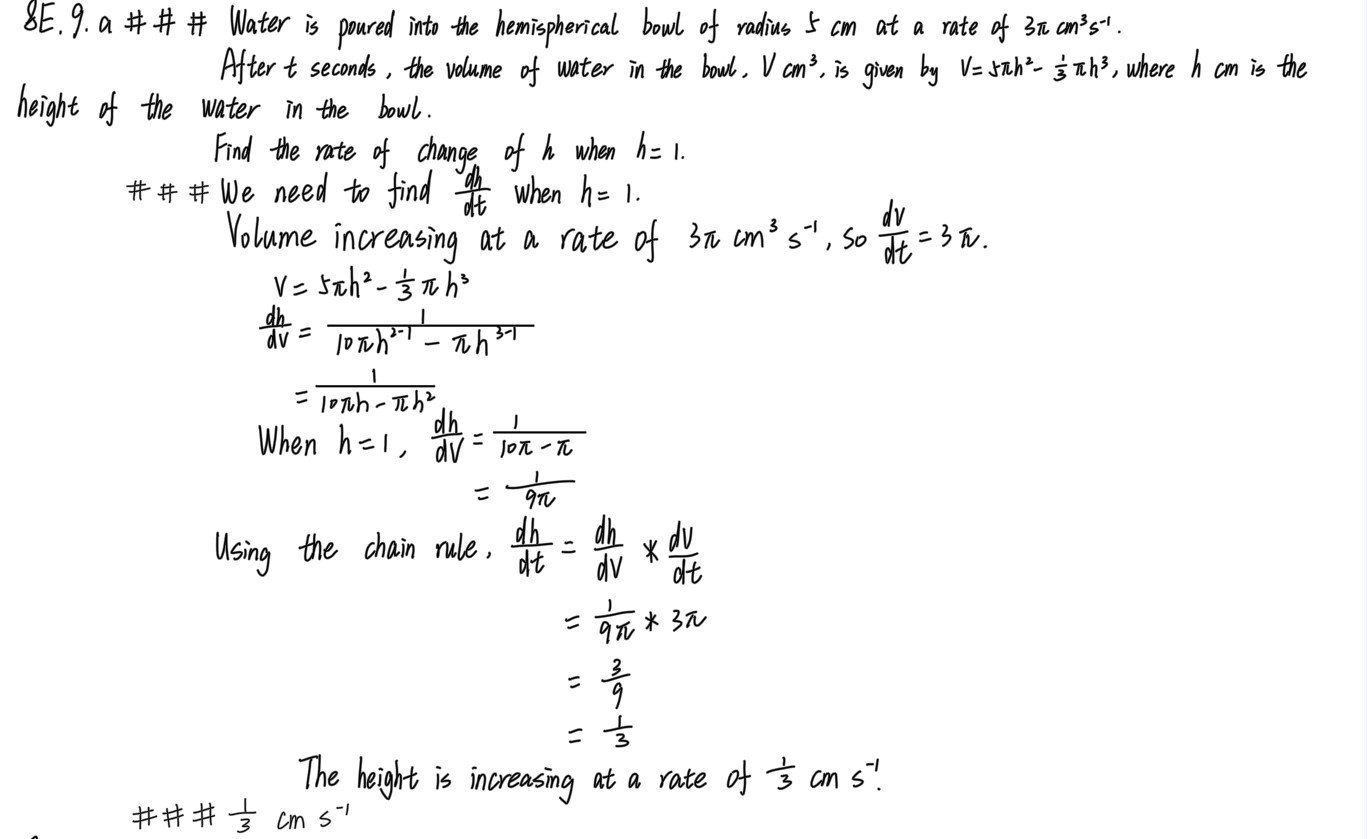 8E.9.a # # # Water is poured into the hemispherical bowl of radius 5 cm at a rate of 3π cm³s⁻¹.
After t seconds, the volume of water in the bowl, V cm³, is given by V = 5πh² - 1/3 πh³, where h cm is the
height of the water in the bowl.
Find the rate of change of h when h = 1.
# # # We need to find dh/dt when h = 1.
Volume increasing at a rate of 3π cm³ s⁻¹, so dv/dt = 3π.
V = 5πh² - 1/3 πh³
dh/dv = 1/(10πh²⁻¹ - πh³⁻¹)
= 1/(10πh - πh²)
When h = 1, dh/dV = 1/(10π - π)
= 1/9π
Using the chain rule, dh/dt = dh/dV * dv/dt
= 1/9π * 3π
= 3/9
= 1/3
The height is increasing at a rate of 1/3 cm s⁻¹.
# # # 1/3 cm s⁻¹